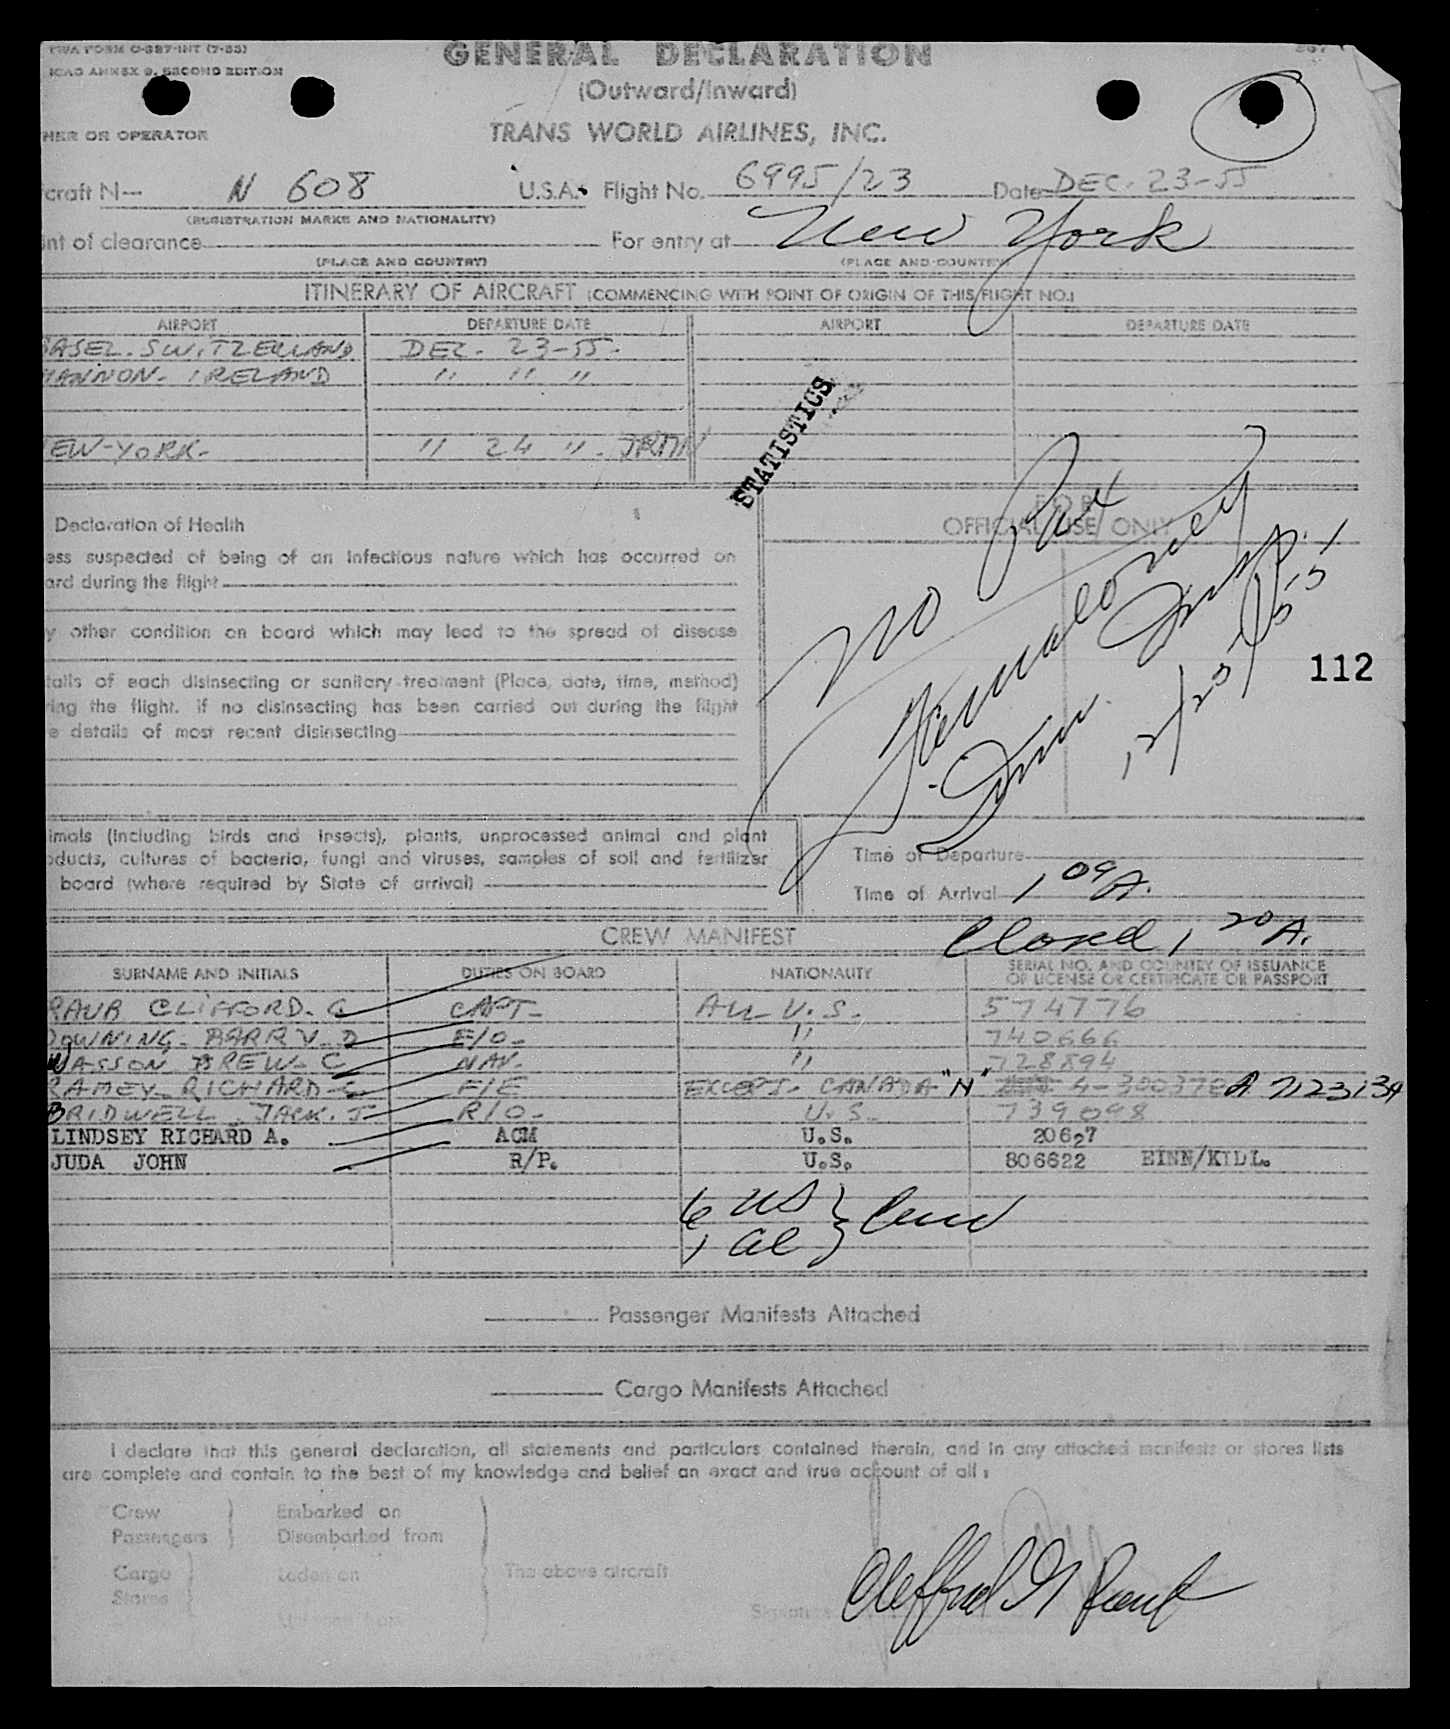 TWA FORM O-887-INT (7-55)
ICAO ANNEX 9, SECOND EDITION
GENERAL DECLARATION
(Outward/Inward)
HER OR OPERATOR
TRANS WORLD AIRLINES, INC.
craft N— N 608 U.S.A. Flight No. 6995/23 Date DEC. 23-55
(REGISTRATION MARKS AND NATIONALITY)
int of clearance For entry at New York
(PLACE AND COUNTRY) (PLACE AND COUNTRY)
ITINERARY OF AIRCRAFT (COMMENCING WITH POINT OF ORIGIN OF THIS FLIGHT NO.)
AIRPORT DEPARTURE DATE AIRPORT DEPARTURE DATE
BASEL. SWITZERLAND DEC. 23-55.
HANNON. IRELAND " " "
EW-YORK. " 24 "
STATISTICS
Declaration of Health
FOR
OFFICIAL USE ONLY
ess suspected of being of an infectious nature which has occurred on
ard during the flight
y other condition on board which may lead to the spread of disease
tails of each disinsecting or sanitary treatment (Place, date, time, method)
ring the flight. If no disinsecting has been carried out during the flight
e details of most recent disinsecting
No Pax
Imm. Insp.
12/25/55
112
imals (including birds and insects), plants, unprocessed animal and plant
oducts, cultures of bacteria, fungi and viruses, samples of soil and fertilizer
board (where required by State of arrival)
Time of Departure
Time of Arrival 1 09 A.
Closed 1 20 A.
CREW MANIFEST
SURNAME AND INITIALS DUTIES ON BOARD NATIONALITY SERIAL NO. AND COUNTRY OF ISSUANCE
OF LICENSE OR CERTIFICATE OR PASSPORT
RAUB CLIFFORD. G CAPT. ALL U.S. 574776
DOWNING. BARRY. D F/O. " 740666
WASSON DREW. C NAV. " 728894
RAMEY RICHARD F/E EXCEPT. CANADA "N" 4-300372 A 7123131
BRIDWELL. JACK. J R/O. U.S. 739098
LINDSEY RICHARD A. ACM U.S. 20627
JUDA JOHN R/P. U.S. 806622 EINN/KIDL.
6 US
1 al } Crew
Passenger Manifests Attached
Cargo Manifests Attached
I declare that this general declaration, all statements and particulars contained therein, and in any attached manifests or stores lists
are complete and contain to the best of my knowledge and belief an exact and true account of all:
Crew Embarked on
Passengers Disembarked from
Cargo Laden on The above aircraft
Stores
Signature Clifford G Raub